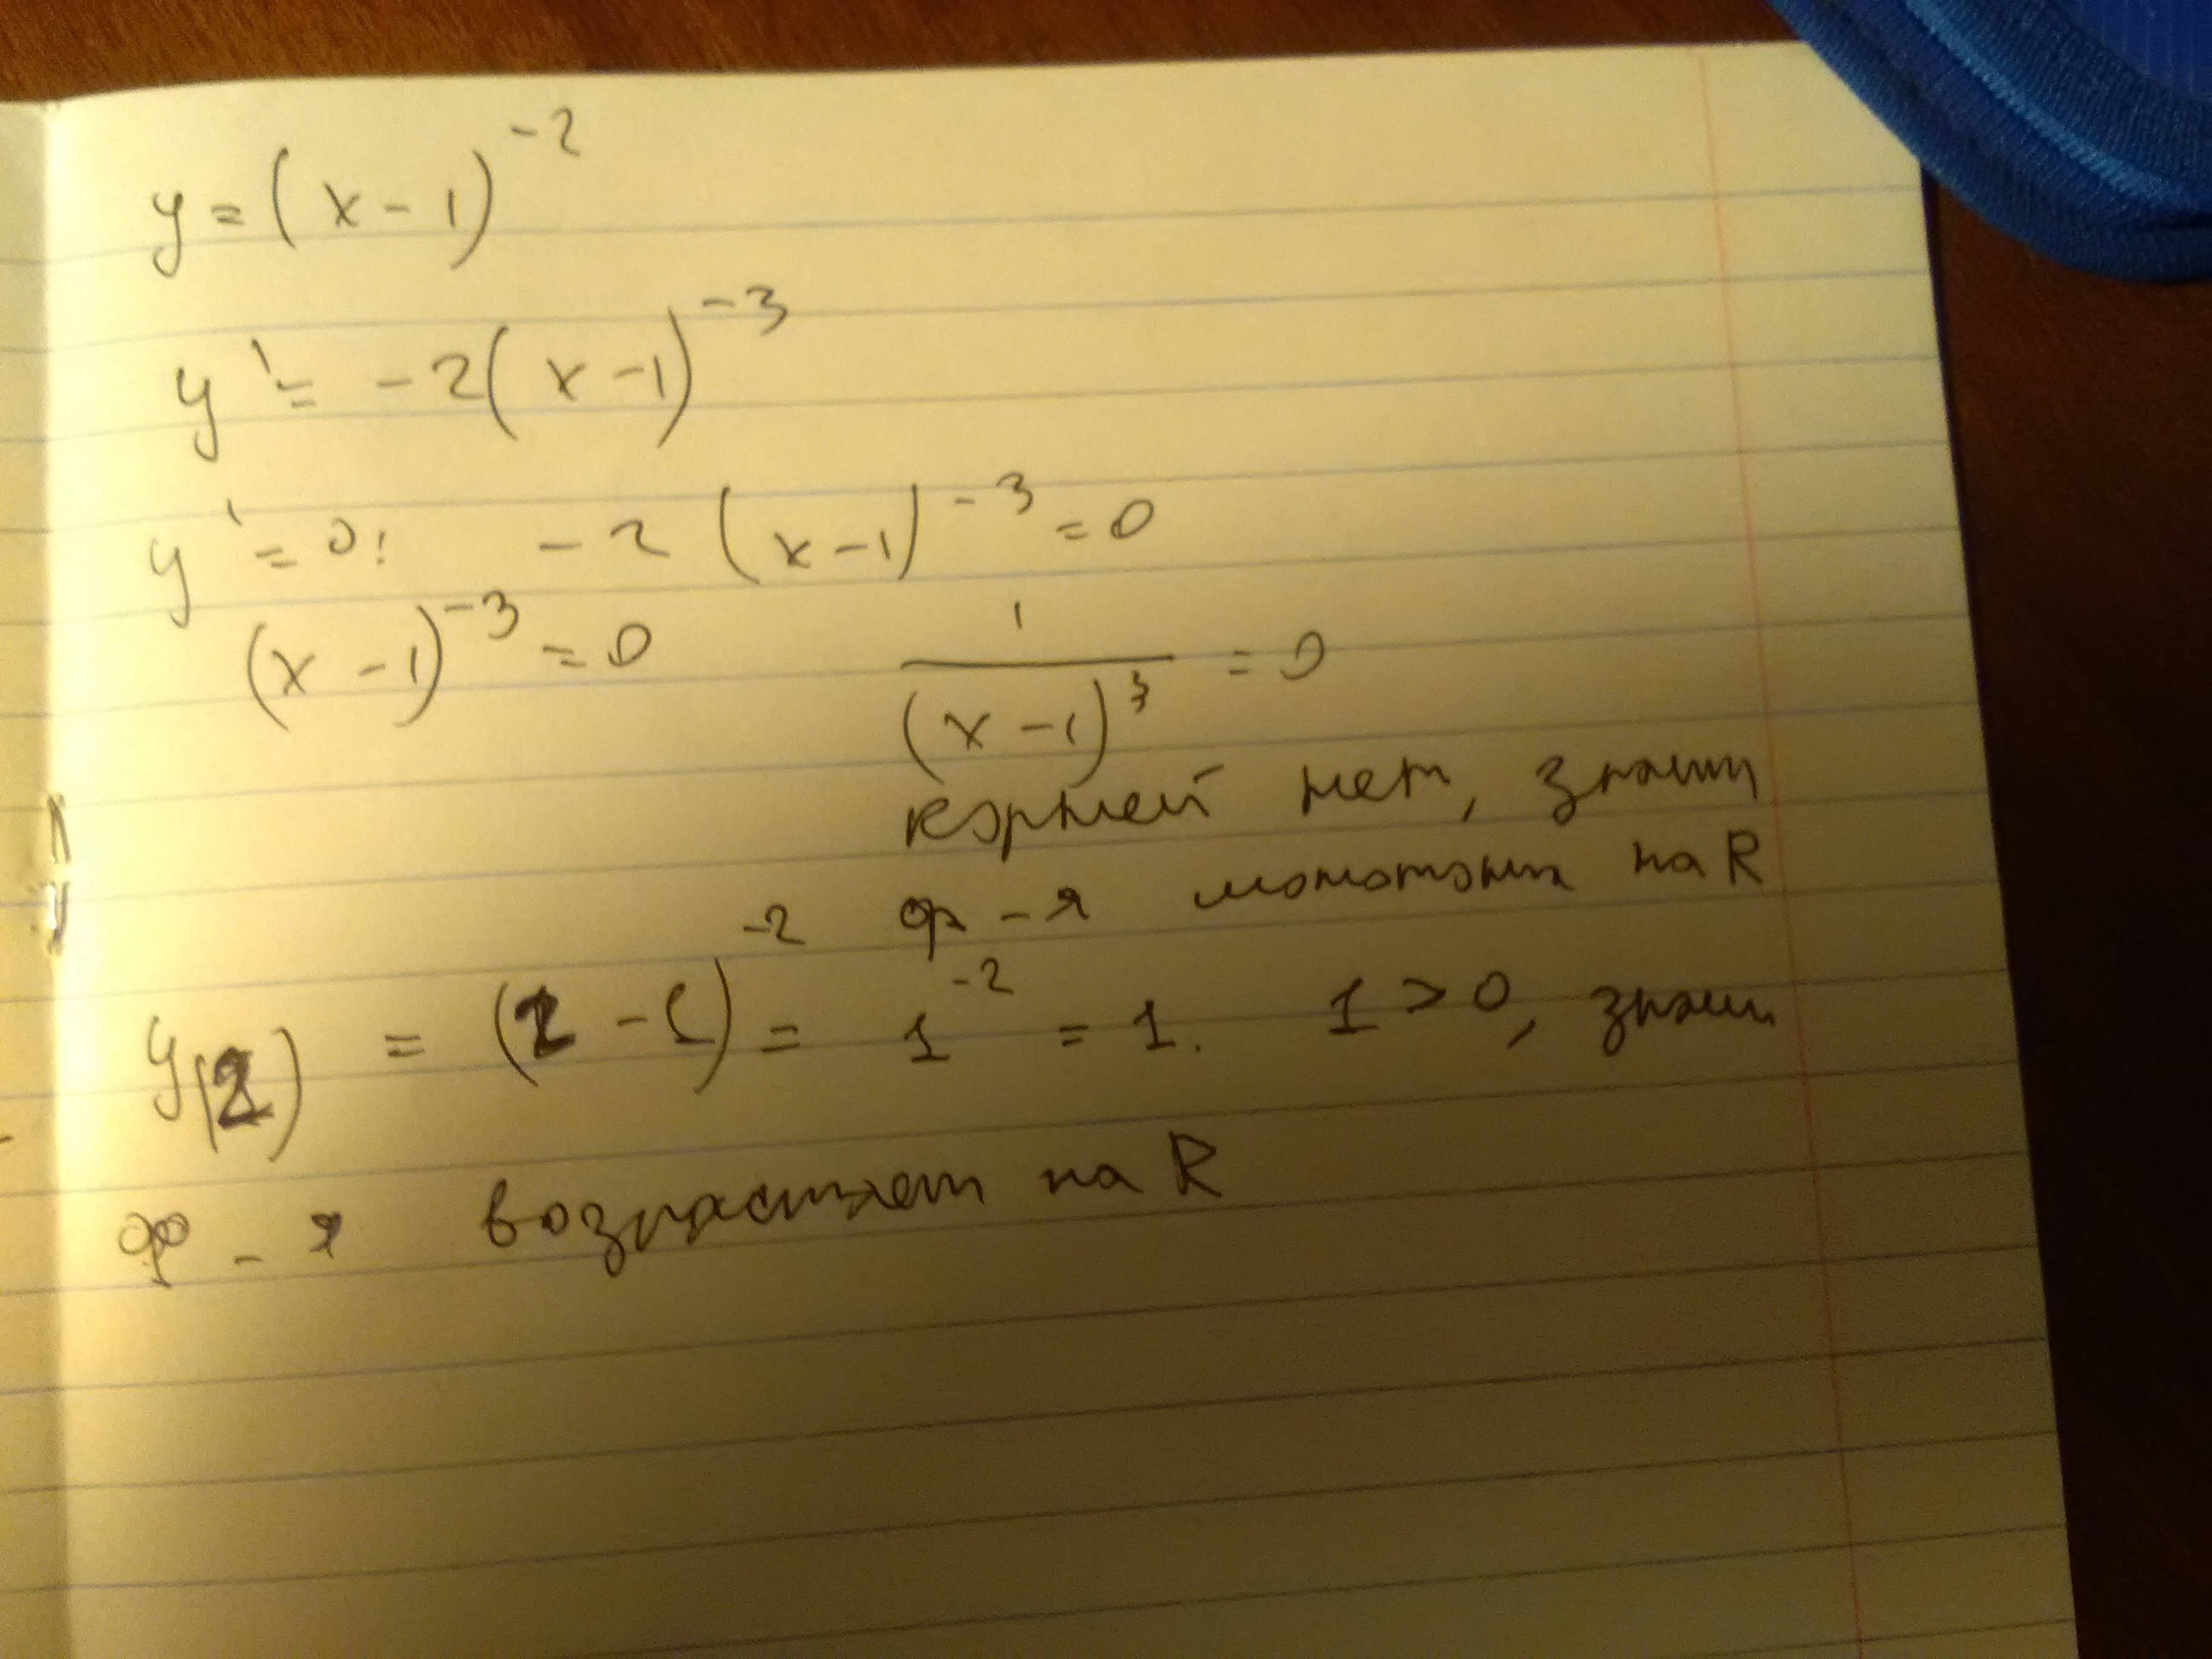 y = (x - 1)^-2
y' = -2(x - 1)^-3
y' = 0: -2 (x - 1)^-3 = 0
(x - 1)^-3 = 0 1/(x - 1)^3 = 0
корней нет, значит
ф-я монотонна на R
y(2) = (2 - 1)^-2 = 1^-2 = 1. 1 > 0, значит
ф-я возрастает на R